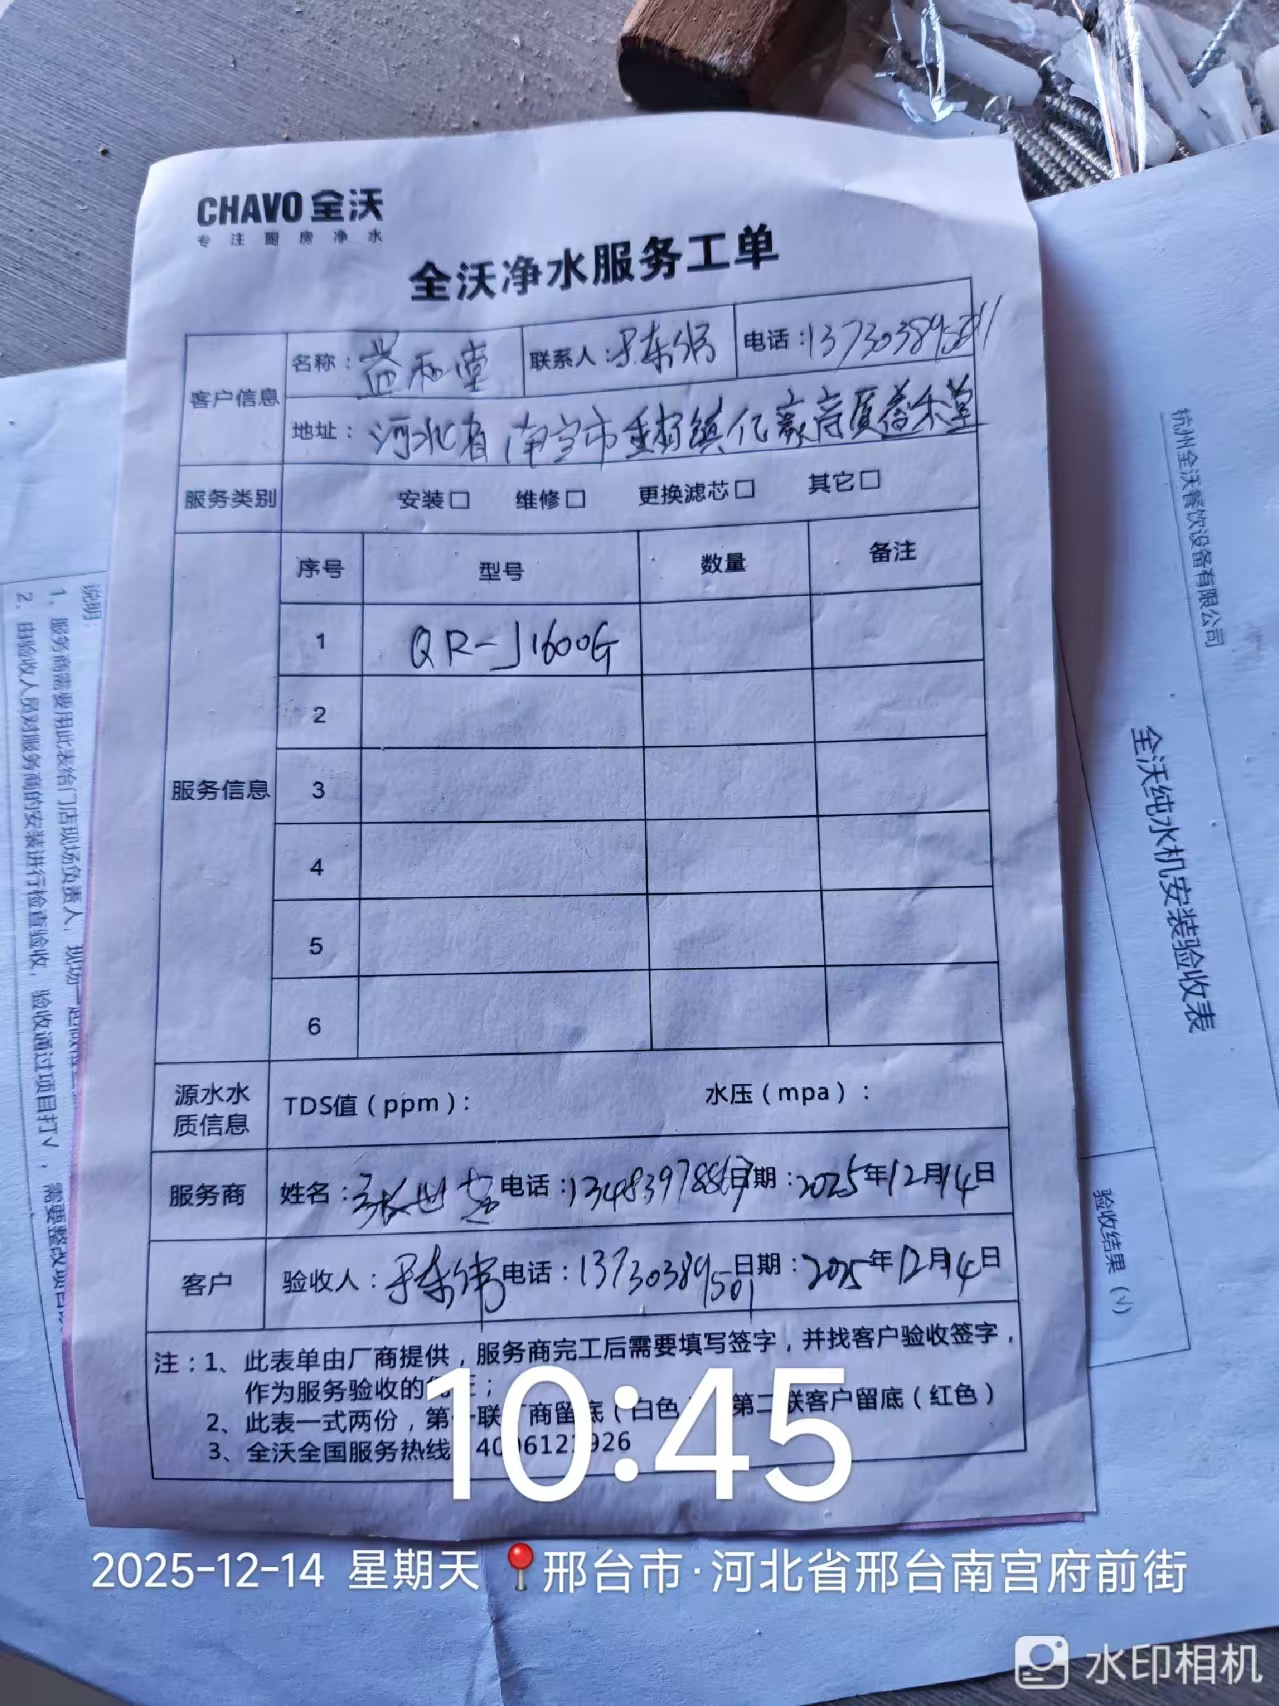 CHAVO 全沃
专注厨房净水
全沃净水服务工单
客户信息
名称：益禾堂 联系人： 电话：137303895
地址：河北省南宫市 镇亿 益禾堂
服务类别 安装□ 维修□ 更换滤芯□ 其它□
服务信息
序号 型号 数量 备注
1 QR-J1600G
2
3
4
5
6
源水水质信息
TDS值（ppm）： 水压（mpa）：
服务商 姓名：张世 电话：134839788 日期：2025年12月14日
客户 验收人： 电话：13730389501 日期：2025年12月14日
注：1、此表单由厂商提供，服务商完工后需要填写签字，并找客户验收签字，
作为服务验收的
2、此表一式两份，第一联厂商留底（白色 第二联客户留底（红色）
3、全沃全国服务热线
10:45
2025-12-14 星期天 邢台市·河北省邢台南宫府前街
水印相机
杭州全沃餐饮设备有限公司
全沃纯水机安装验收表
验收结果（√）
说明：
1、服务商需要用此表给门店现场负责人，现场一起
2、由验收人员对服务商的安装进行检查验收，验收通过项目打√，需要整改项目